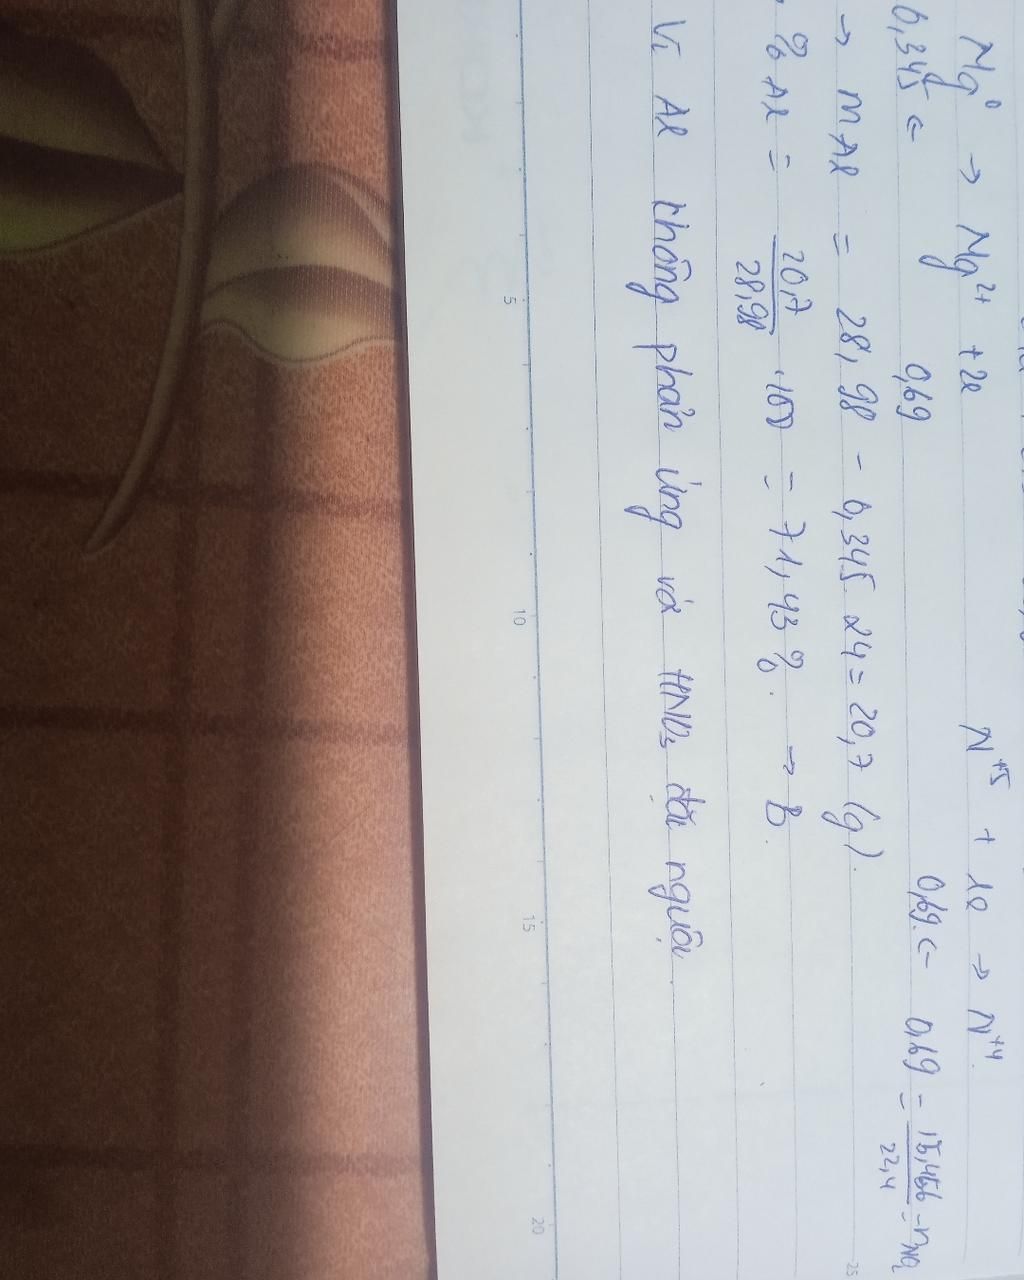 Mg⁰ → Mg²⁺ + 2e N⁺⁵ + 1e → N⁺⁴
0,345 ← 0,69 0,69 ← 0,69 = 15,456/22,4 = nNO₂
→ mAl = 28,98 - 0,345.24 = 20,7 (g).
% Al = 20,7/28,98 .100 = 71,43%. → B.
Vì Al không phản ứng vá HNO₃ đặc nguội.
5
10
15
20
25